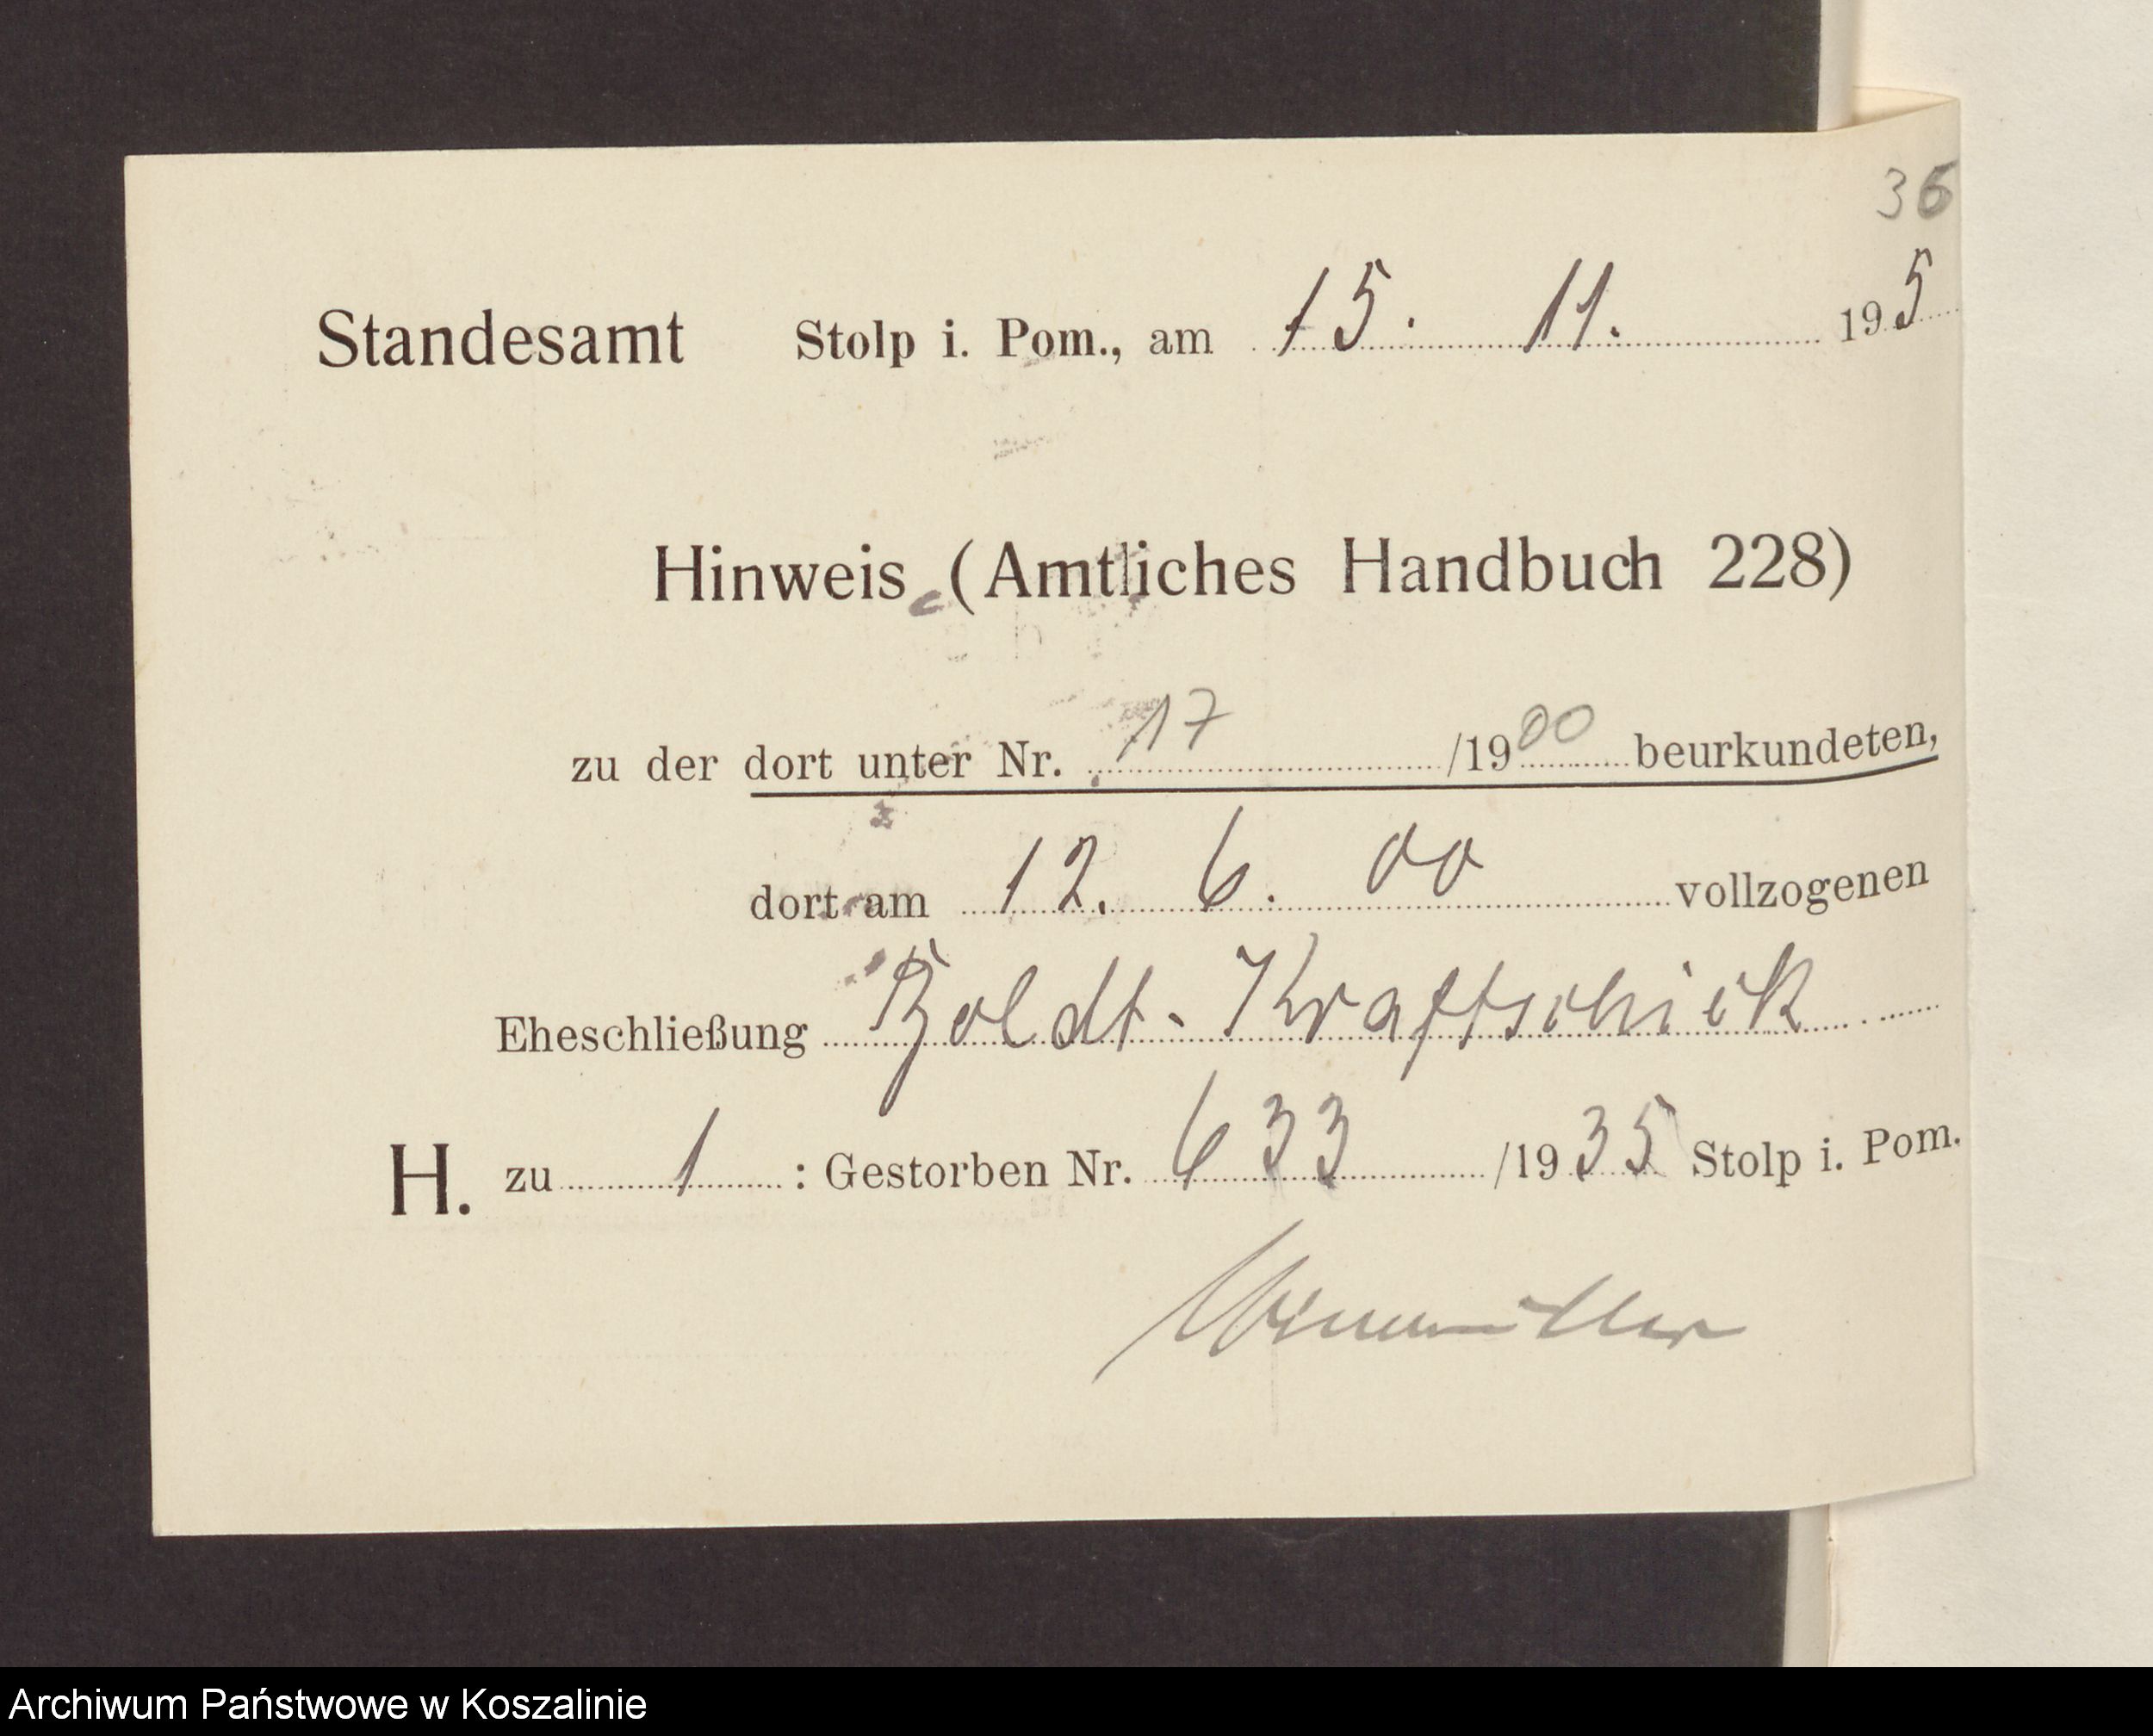 36
Standesamt Stolp i. Pom., am 15. 11. 195
Hinweis (Amtliches Handbuch 228)
zu der dort unter Nr. 17 /1900 beurkundeten,
dort am 12. 6. 00 vollzogenen
Eheschließung Boldt-Kraftschick
H. zu 1 : Gestorben Nr. 633 /1935 Stolp i. Pom.
Archiwum Państwowe w Koszalinie